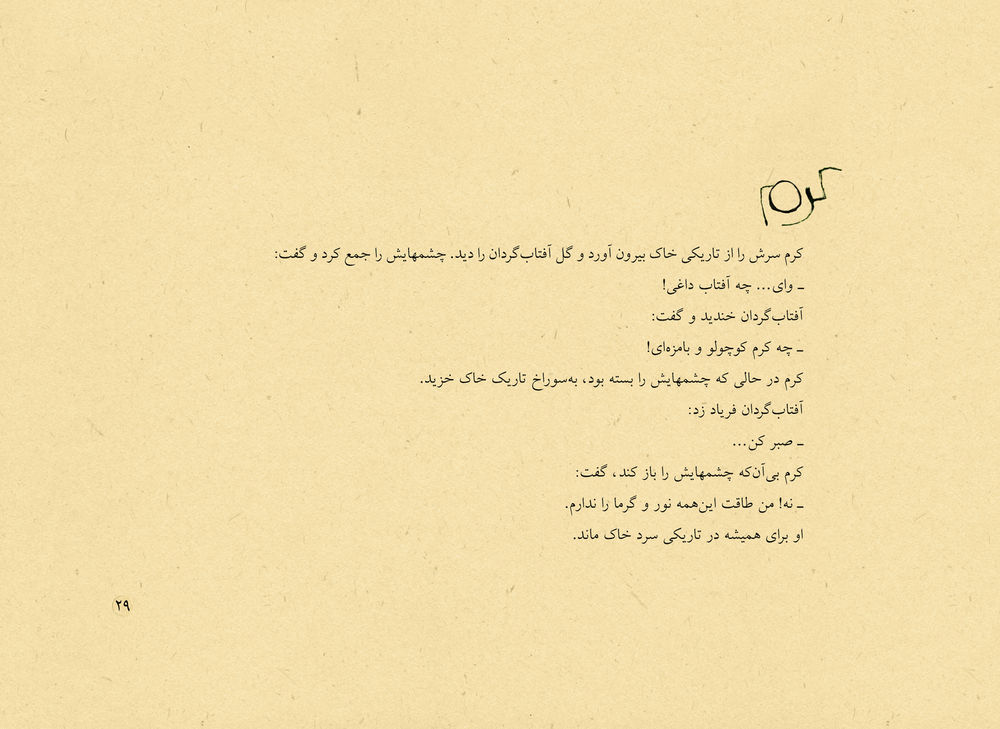 کرم
کرم سرش را از تاریکی خاک بیرون آورد و گل آفتاب‌گردان را دید. چشمهایش را جمع کرد و گفت:
ـ وای... چه آفتاب داغی!
آفتاب‌گردان خندید و گفت:
ـ چه کرم کوچولو و بامزه‌ای!
کرم در حالی که چشمهایش را بسته بود، به‌سوراخ تاریک خاک خزید.
آفتاب‌گردان فریاد زد:
ـ صبر کن...
کرم بی‌آن‌که چشمهایش را باز کند، گفت:
ـ نه! من طاقت این‌همه نور و گرما را ندارم.
او برای همیشه در تاریکی سرد خاک ماند.
۲۹